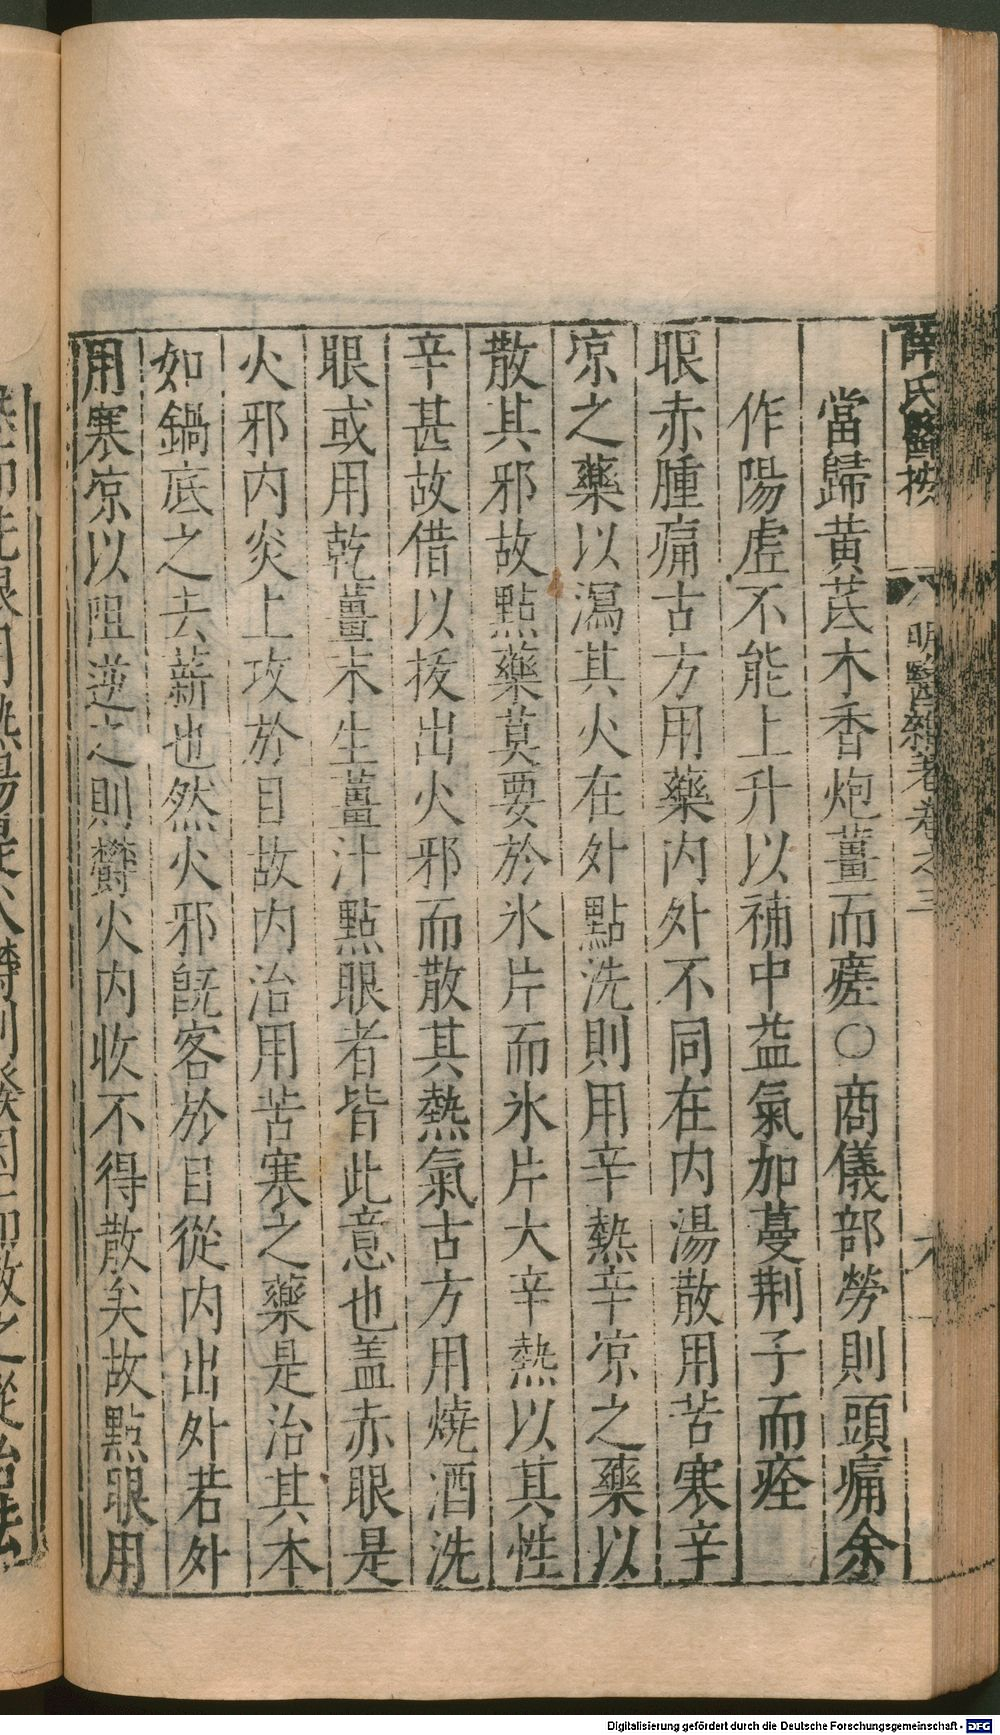 薛氏醫按 明醫雜著卷之三 六
當歸黃芪木香炮薑而瘥○商儀部勞則頭痛余
作陽虛不能上升以補中益氣加蔓荆子而痊
眼赤腫痛古方用藥內外不同在內湯散用苦寒辛
凉之藥以瀉其火在外點洗則用辛熱辛凉之藥以
散其邪故點藥莫要於氷片而氷片大辛熱以其性
辛甚故借以拔出火邪而散其熱氣古方用燒酒洗
眼或用乾薑末生薑汁點眼者皆此意也盖赤眼是
火邪內炎上攻於目故內治用苦寒之藥是治其本
如鍋底之去薪也然火邪既客於目從內出外若外
用寒凉以阻逆之則欝火內收不得散矣故點眼用
Digitalisierung gefördert durch die Deutsche Forschungsgemeinschaft - DFG